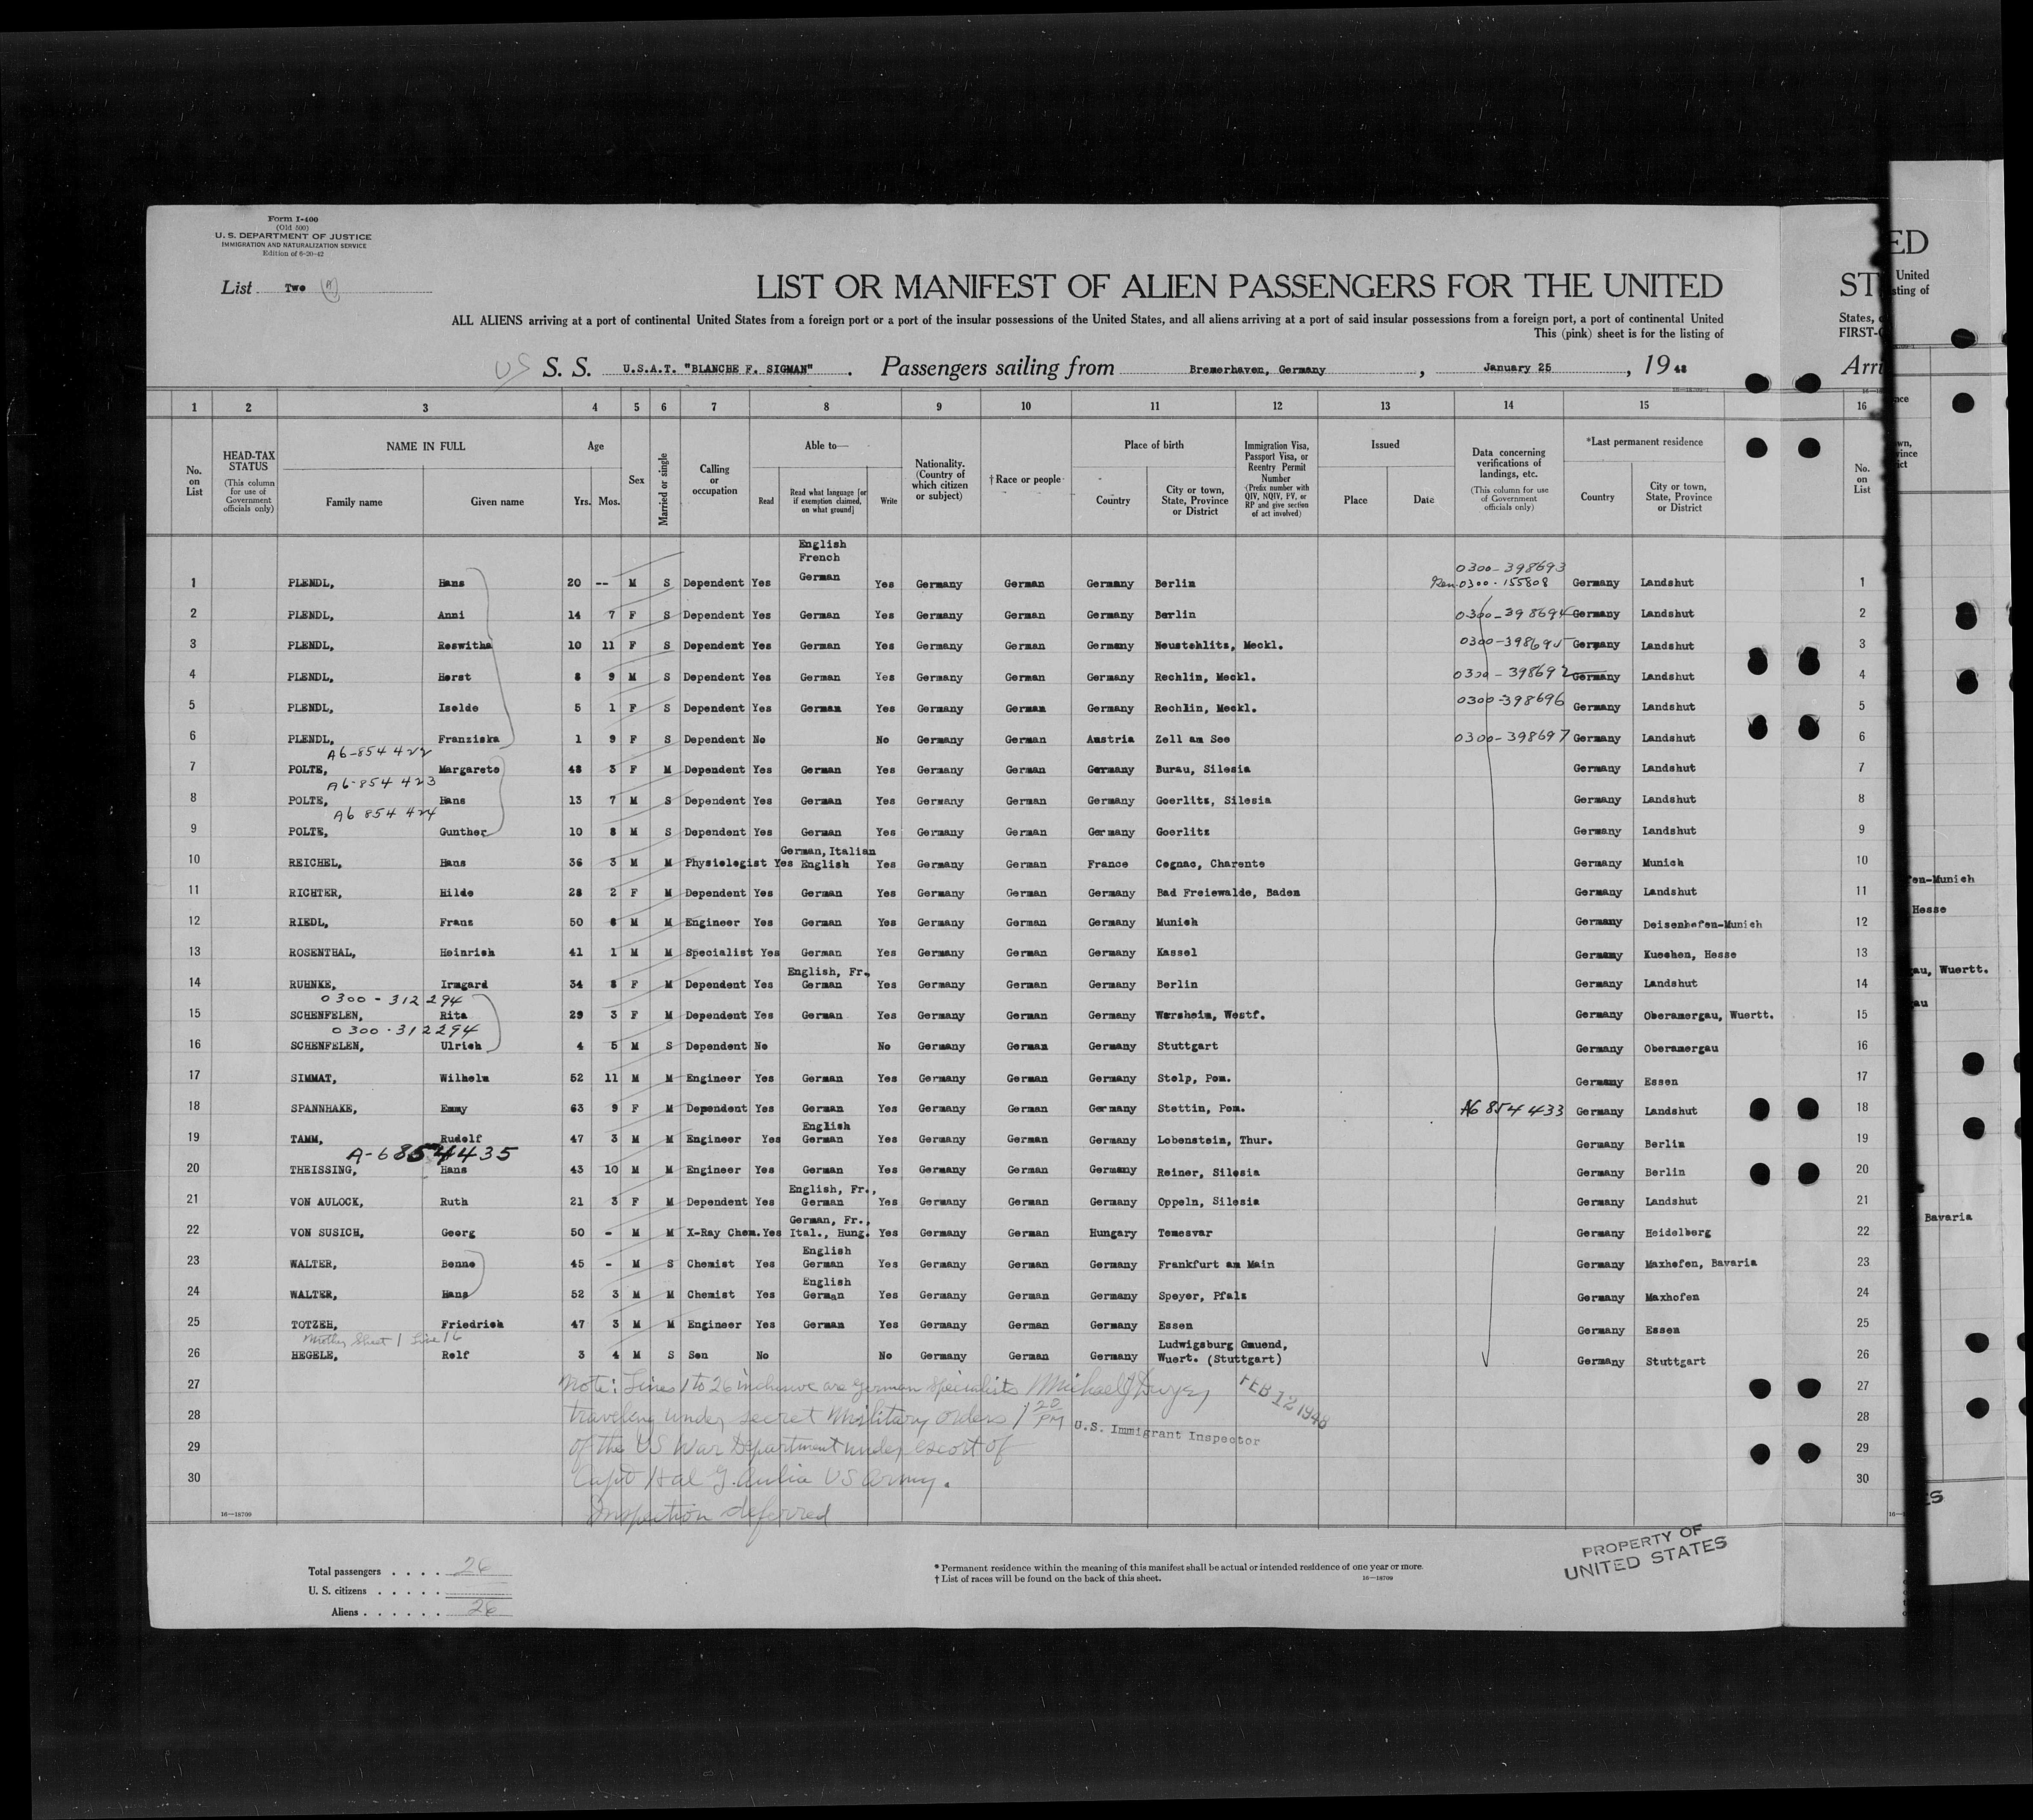 Form I-400
(Old 500)
U. S. DEPARTMENT OF JUSTICE
IMMIGRATION AND NATURALIZATION SERVICE
Edition of 6-20-42
List Two (A)
LIST OR MANIFEST OF ALIEN PASSENGERS FOR THE UNITED
ALL ALIENS arriving at a port of continental United States from a foreign port or a port of the insular possessions of the United States, and all aliens arriving at a port of said insular possessions from a foreign port, a port of continental United
This (pink) sheet is for the listing of
US S. S. U.S.A.T. "BLANCHE F. SIGMAN". Passengers sailing from Bremerhaven, Germany, January 25, 1948
1 2 3 4 5 6 7 8 9 10 11 12 13 14 15 16
No. on List
HEAD-TAX STATUS (This column for use of Government officials only)
NAME IN FULL Family name Given name
Age Yrs. Mos.
Sex
Married or single
Calling or occupation
Able to— Read Read what language [or if exemption claimed, on what ground] Write
Nationality. (Country of which citizen or subject)
†Race or people
Place of birth Country City or town, State, Province or District
Immigration Visa, Passport Visa, or Reentry Permit Number (Prefix number with QIV, NQIV, PV, or RP and give section of act involved)
Issued Place Date
Data concerning verifications of landings, etc. (This column for use of Government officials only)
*Last permanent residence Country City or town, State, Province or District
No. on List
English
French
0300-398693
1 PLENDL, Hans 20 -- M S Dependent Yes German Yes Germany German Germany Berlin 0300-155808 Germany Landshut 1
2 PLENDL, Anni 14 7 F S Dependent Yes German Yes Germany German Germany Berlin 0300-398694 Germany Landshut 2
3 PLENDL, Roswitha 10 11 F S Dependent Yes German Yes Germany German Germany Neustehlitz, Meckl. 0300-398695 Germany Landshut 3
4 PLENDL, Horst 8 9 M S Dependent Yes German Yes Germany German Germany Rechlin, Meckl. 0300-398692 Germany Landshut 4
5 PLENDL, Isolde 5 1 F S Dependent Yes German Yes Germany German Germany Rechlin, Meckl. 0300-398696 Germany Landshut 5
6 PLENDL, Franziska 1 9 F S Dependent No No Germany German Austria Zell am See 0300-398697 Germany Landshut 6
A6-854 422
7 POLTE, Margarete 48 3 F M Dependent Yes German Yes Germany German Germany Burau, Silesia Germany Landshut 7
A6-854 423
8 POLTE, Hans 13 7 M S Dependent Yes German Yes Germany German Germany Goerlitz, Silesia Germany Landshut 8
A6 854 424
9 POLTE, Gunther 10 8 M S Dependent Yes German Yes Germany German Germany Goerlitz Germany Landshut 9
German, Italian
10 REICHEL, Hans 36 3 M M Physiologist Yes English Yes Germany German France Cognac, Charente Germany Munich 10
11 RICHTER, Hilde 28 2 F M Dependent Yes German Yes Germany German Germany Bad Freiewalde, Baden Germany Landshut 11
12 RIEDL, Franz 50 8 M M Engineer Yes German Yes Germany German Germany Munich Germany Deisenhofen-Munich 12
13 ROSENTHAL, Heinrich 41 1 M M Specialist Yes German Yes Germany German Germany Kassel Germany Kuechen, Hesse 13
English, Fr.,
14 RUHNKE, Irmgard 34 8 F M Dependent Yes German Yes Germany German Germany Berlin Germany Landshut 14
0300-312294
15 SCHENFELEN, Rita 29 3 F M Dependent Yes German Yes Germany German Germany Warsheim, Westf. Germany Oberamergau, Wuertt. 15
0300-312294
16 SCHENFELEN, Ulrich 4 5 M S Dependent No No Germany German Germany Stuttgart Germany Oberamergau 16
17 SIMMAT, Wilhelm 52 11 M M Engineer Yes German Yes Germany German Germany Stolp, Pom. Germany Essen 17
18 SPANNHAKE, Emmy 63 9 F M Dependent Yes German Yes Germany German Germany Stettin, Pom. A6 854 433 Germany Landshut 18
English
19 TAMM, Rudolf 47 3 M M Engineer Yes German Yes Germany German Germany Lobenstein, Thur. Germany Berlin 19
A-6854435
20 THEISSING, Hans 43 10 M M Engineer Yes German Yes Germany German Germany Reiner, Silesia Germany Berlin 20
English, Fr.,
21 VON AULOCK, Ruth 21 3 F M Dependent Yes German Yes Germany German Germany Oppeln, Silesia Germany Landshut 21
German, Fr.,
22 VON SUSICH, Georg 50 - M M X-Ray Chem. Yes Ital., Hung. Yes Germany German Hungary Temesvar Germany Heidelberg 22
English
23 WALTER, Benno 45 - M S Chemist Yes German Yes Germany German Germany Frankfurt am Main Germany Maxhofen, Bavaria 23
English
24 WALTER, Hans 52 3 M M Chemist Yes German Yes Germany German Germany Speyer, Pfalz Germany Maxhofen 24
25 TOTZEH, Friedrich 47 3 M M Engineer Yes German Yes Germany German Germany Essen Germany Essen 25
Mother Sheet 1 Line 16
Ludwigsburg Gmuend,
26 HEGELE, Rolf 3 4 M S Son No No Germany German Germany Wuert. (Stuttgart) Germany Stuttgart 26
27 Note: Lines 1 to 26 inclusive are German Specialists Michael J Dwyer FEB 12 1948 27
28 traveling under secret Military orders 1 20 PM U.S. Immigrant Inspector 28
29 of the US War Department under escort of 29
30 Capt Hal G. US Army. 30
Inspection deferred
16—18709
Total passengers . . . . 26
U. S. citizens . . . . .
Aliens . . . . . . 26
* Permanent residence within the meaning of this manifest shall be actual or intended residence of one year or more.
† List of races will be found on the back of this sheet.
16—18709
PROPERTY OF
UNITED STATES
ST
States,
FIRST-
Arri
ED
United
sting of
fen-Munich
Hesse
gau, Wuertt.
gau
Bavaria
ES